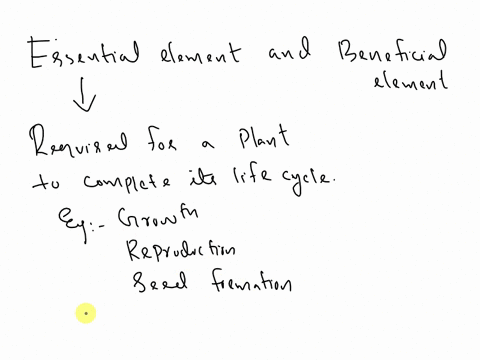 Essential element and Beneficial
element
Required for a Plant
to complete its life cycle.
Eg:- Growth
Reproduction
Seed formation